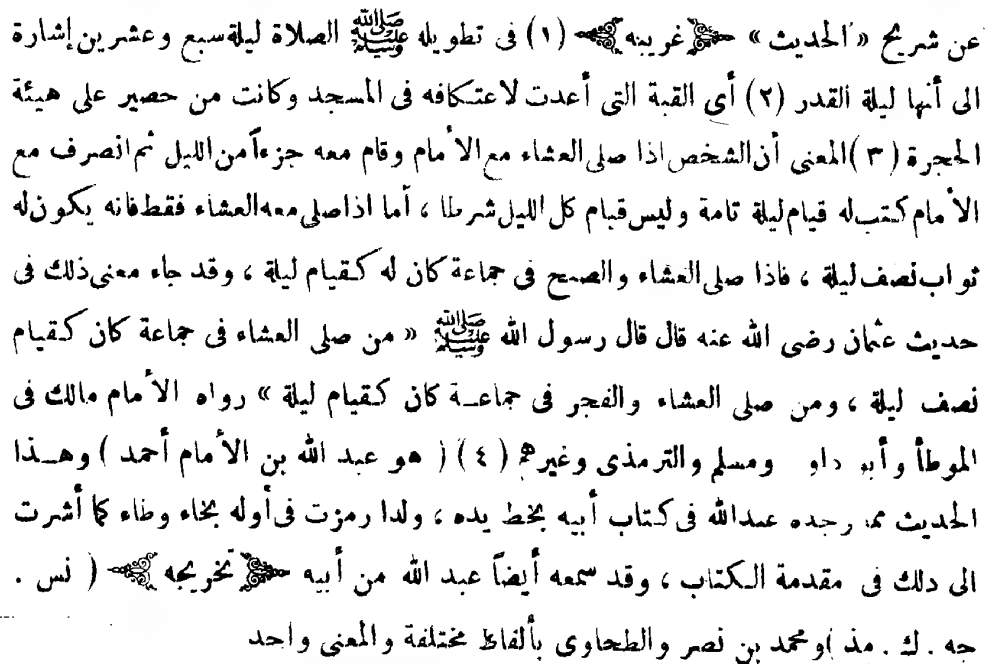 عن شريح «الحديث» غريبه (١) فى تطويله ﷺ الصلاة ليلة سبع وعشرين إشارة
الى أنها ليلة القدر (٢) أى القبة التى أعدت لاعتكافه فى المسجد وكانت من حصير على هيئة
الحجرة (٣) المعنى أن الشخص اذا صلى العشاء مع الأمام وقام معه جزءاً من الليل ثم انصرف مع
الأمام كتب له قيام ليلة تامة وليس قيام كل الليل شرطا ، أما اذا صلى معه العشاء فقط فانه يكون له
ثواب نصف ليلة ، فاذا صلى العشاء والصبح فى جماعة كان له كقيام ليلة ، وقد جاء معنى ذلك فى
حديث عثمان رضى الله عنه قال قال رسول الله ﷺ « من صلى العشاء فى جماعة كان كقيام
نصف ليلة ، ومن صلى العشاء والفجر فى جماعة كان كقيام ليلة » رواه الأمام مالك فى
الموطأ وأبو داو ومسلم والترمذى وغيرهم (٤) ( هو عبد الله بن الأمام أحمد ) وهذا
الحديث مما وجده عبدالله فى كتاب أبيه بخط يده ، ولذا رمزت فى أوله بخاء وطاء كما أشرت
الى ذلك فى مقدمة الكتاب ، وقد سمعه أيضاً عبد الله من أبيه تخريجه ( نس .
جه . ك . مذ ) ومحمد بن نصر والطحاوى بألفاظ مختلفة والمعنى واحد